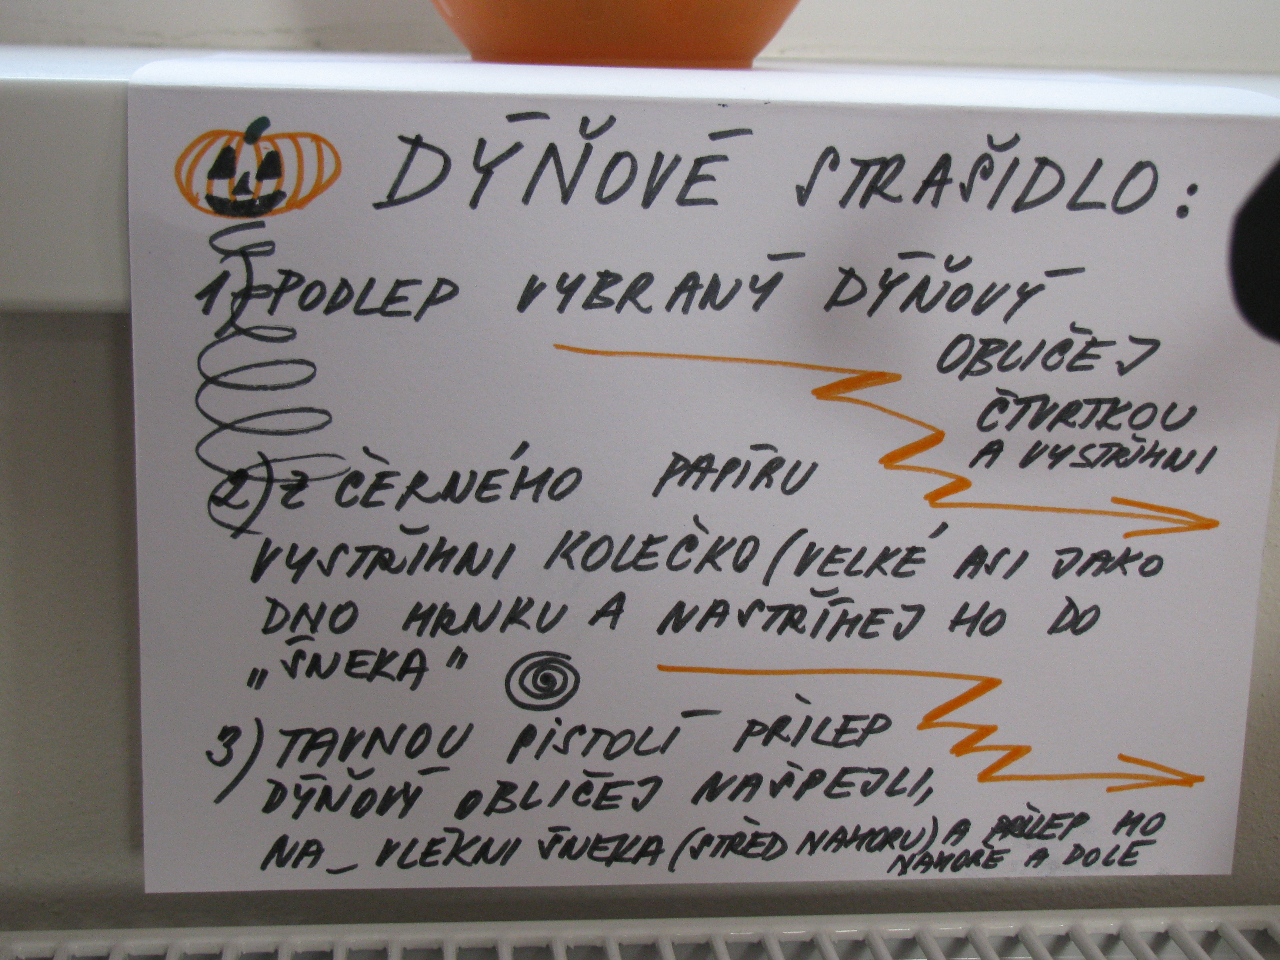 DÝŇOVÉ STRAŠIDLO:
1) PODLEP VYBRANÝ DÝŇOVÝ
OBLIČEJ
ČTVRTKOU
A VYSTŘIHNI
2) Z ČERNÉHO PAPÍRU
VYSTŘIHNI KOLEČKO (VELKÉ ASI JAKO
DNO HRNKU A NASTŘÍHEJ HO DO
„ŠNEKA"
3) TAVNOU PISTOLÍ PŘILEP
DÝŇOVÝ OBLIČEJ NAŠPEJLI,
NA_VLÉKNI ŠNEKA (STŘED NAHORU) A PŘILEP HO
NAHOŘE A DOLE